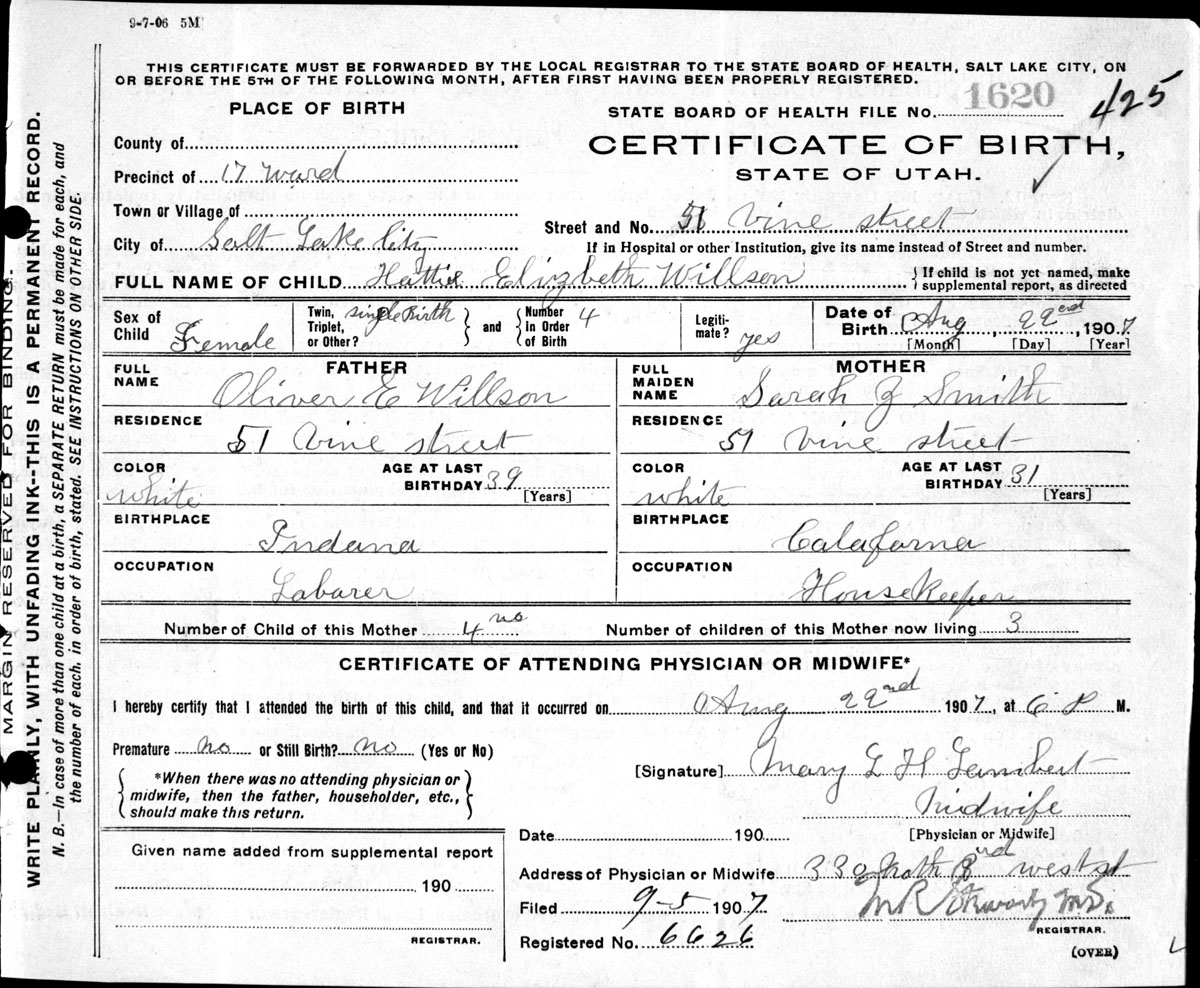 9-7-06 5M
THIS CERTIFICATE MUST BE FORWARDED BY THE LOCAL REGISTRAR TO THE STATE BOARD OF HEALTH, SALT LAKE CITY, ON
OR BEFORE THE 5TH OF THE FOLLOWING MONTH, AFTER FIRST HAVING BEEN PROPERLY REGISTERED.
PLACE OF BIRTH
STATE BOARD OF HEALTH FILE No. 1620
425
CERTIFICATE OF BIRTH,
STATE OF UTAH.
County of
Precinct of 17 Ward
Town or Village of
Street and No. 51 Vine street
City of Salt Lake City
If in Hospital or other Institution, give its name instead of Street and number.
FULL NAME OF CHILD Hattie Elizbeth Willson
{ If child is not yet named, make
supplemental report, as directed
Sex of Child Female
Twin, Triplet, or Other? single Birth
and
Number in Order of Birth 4
Legiti-mate? yes
Date of Birth Aug, 22end, 1907
[Month] [Day] [Year]
FATHER
FULL NAME Oliver E Willson
RESIDENCE
51 Vine street
COLOR white
AGE AT LAST BIRTHDAY 39
[Years]
BIRTHPLACE
Indana
OCCUPATION
Labarer
MOTHER
FULL MAIDEN NAME Sarah J Smith
RESIDENCE
51 Vine street
COLOR white
AGE AT LAST BIRTHDAY 31
[Years]
BIRTHPLACE
Calaforna
OCCUPATION
HouseKeeper
Number of Child of this Mother 4 no
Number of children of this Mother now living 3
CERTIFICATE OF ATTENDING PHYSICIAN OR MIDWIFE*
I hereby certify that I attended the birth of this child, and that it occurred on Aug 22nd 1907, at 6 P M.
Premature no or Still Birth? no (Yes or No)
{ *When there was no attending physician or
midwife, then the father, householder, etc.,
should make this return. }
[Signature] Mary E H Lambert
Midwife
[Physician or Midwife]
Date 190
Given name added from supplemental report
190
REGISTRAR.
Address of Physician or Midwife 330 North west st
Filed 9-5 1907
M.D.
REGISTRAR.
Registered No. 6626
(OVER)
MARGIN RESERVED FOR BINDING.
WRITE PLAINLY, WITH UNFADING INK--THIS IS A PERMANENT RECORD.
N. B.—In case of more than one child at a birth, a SEPARATE RETURN must be made for each, and
the number of each. in order of birth, stated. SEE INSTRUCTIONS ON OTHER SIDE.